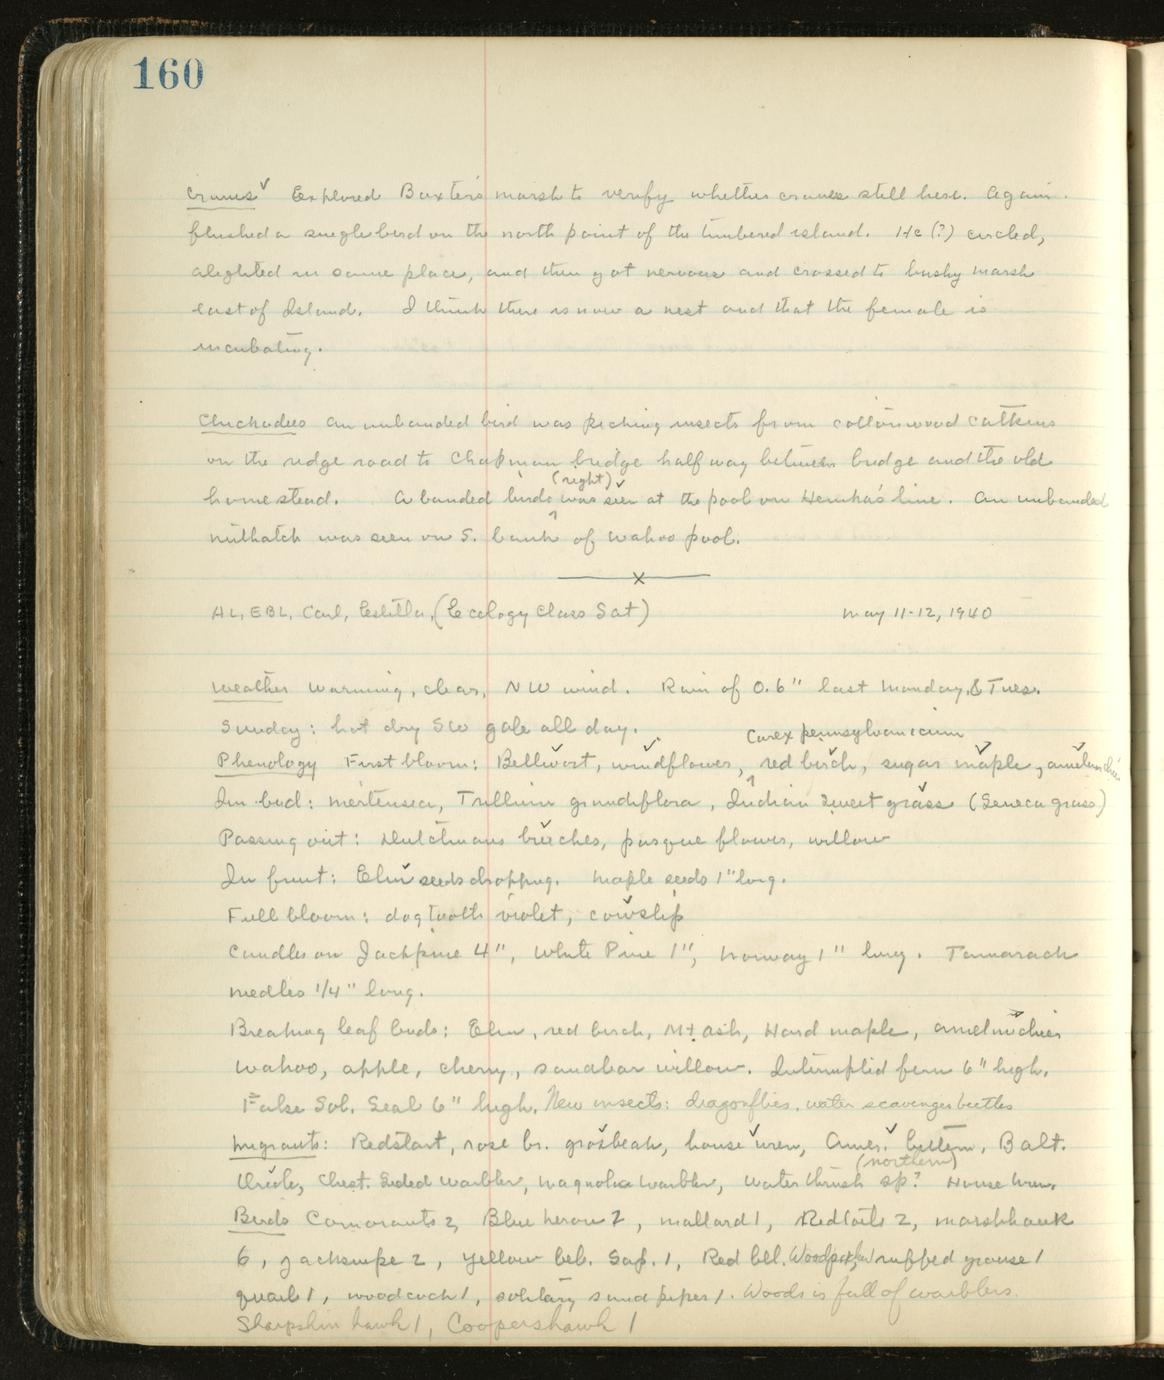 160
Cranes ✓ Explored Baxter's marsh to verify whether cranes still here. Again
flushed a single bird on the north point of the timbered island. He (?) circled,
alighted in same place, and then got nervous and crossed to bushy marsh
east of Island. I think there is now a nest and that the female is
incubating.
Chickadees An unbanded bird was picking insects from cottonwood catkins
on the ridge road to Chapman bridge half way between bridge and the old
(right) ✓
homestead. A banded bird ^ was seen at the pool on Hemka's line. An unbanded
nuthatch was seen on S. bank of wahoo pool.
x
AL, EBL, Carl, Estella, (Ecology Class Sat) May 11-12, 1940
Weather Warming, clear, NW wind. Rain of 0.6" last Monday, & Tues.
Sunday: hot dry SW gale all day.
Carex pennsylvanicum
Phenology First bloom: Bellwort, windflower, ^ red birch, sugar maple, amelanchier
In bud: mertensia, Trillium grandiflora, Indian sweet grass (Seneca grass)
Passing out: Dutchmans breeches, pasque flower, willow
In fruit: Elm seeds dropping. Maple seeds 1" long.
Full bloom: dogtooth violet, cowslip
Candles on Jackpine 4", White Pine 1", Norway 1" long. Tamarack
needles 1/4" long.
Breaking leaf buds: Elm, red birch, Mt. ash, Hard maple, amelanchier
wahoo, apple, cherry, sandbar willow. Interrupted fern 6" high.
False Sol. Seal 6" high. New insects: dragonflies, water scavenger beetles
Migrants: Redstart, rose br. grosbeak, house wren, Amer. bittern, Balt.
(northern)
Oriole, Chest. Sided Warbler, Magnolia Warbler, Water thrush sp? House Wren.
Birds Cormorants 2, Blue heron 2, mallard 1, Redtails 2, marshhawk
6, jacksnipe 2, yellow bel. Sap. 1, Red bell. Woodpecker, ruffed grouse 1
quail 1, woodcock 1, solitary sandpiper 1. Woods is full of warblers.
Sharpshin hawk 1, Coopershawk 1